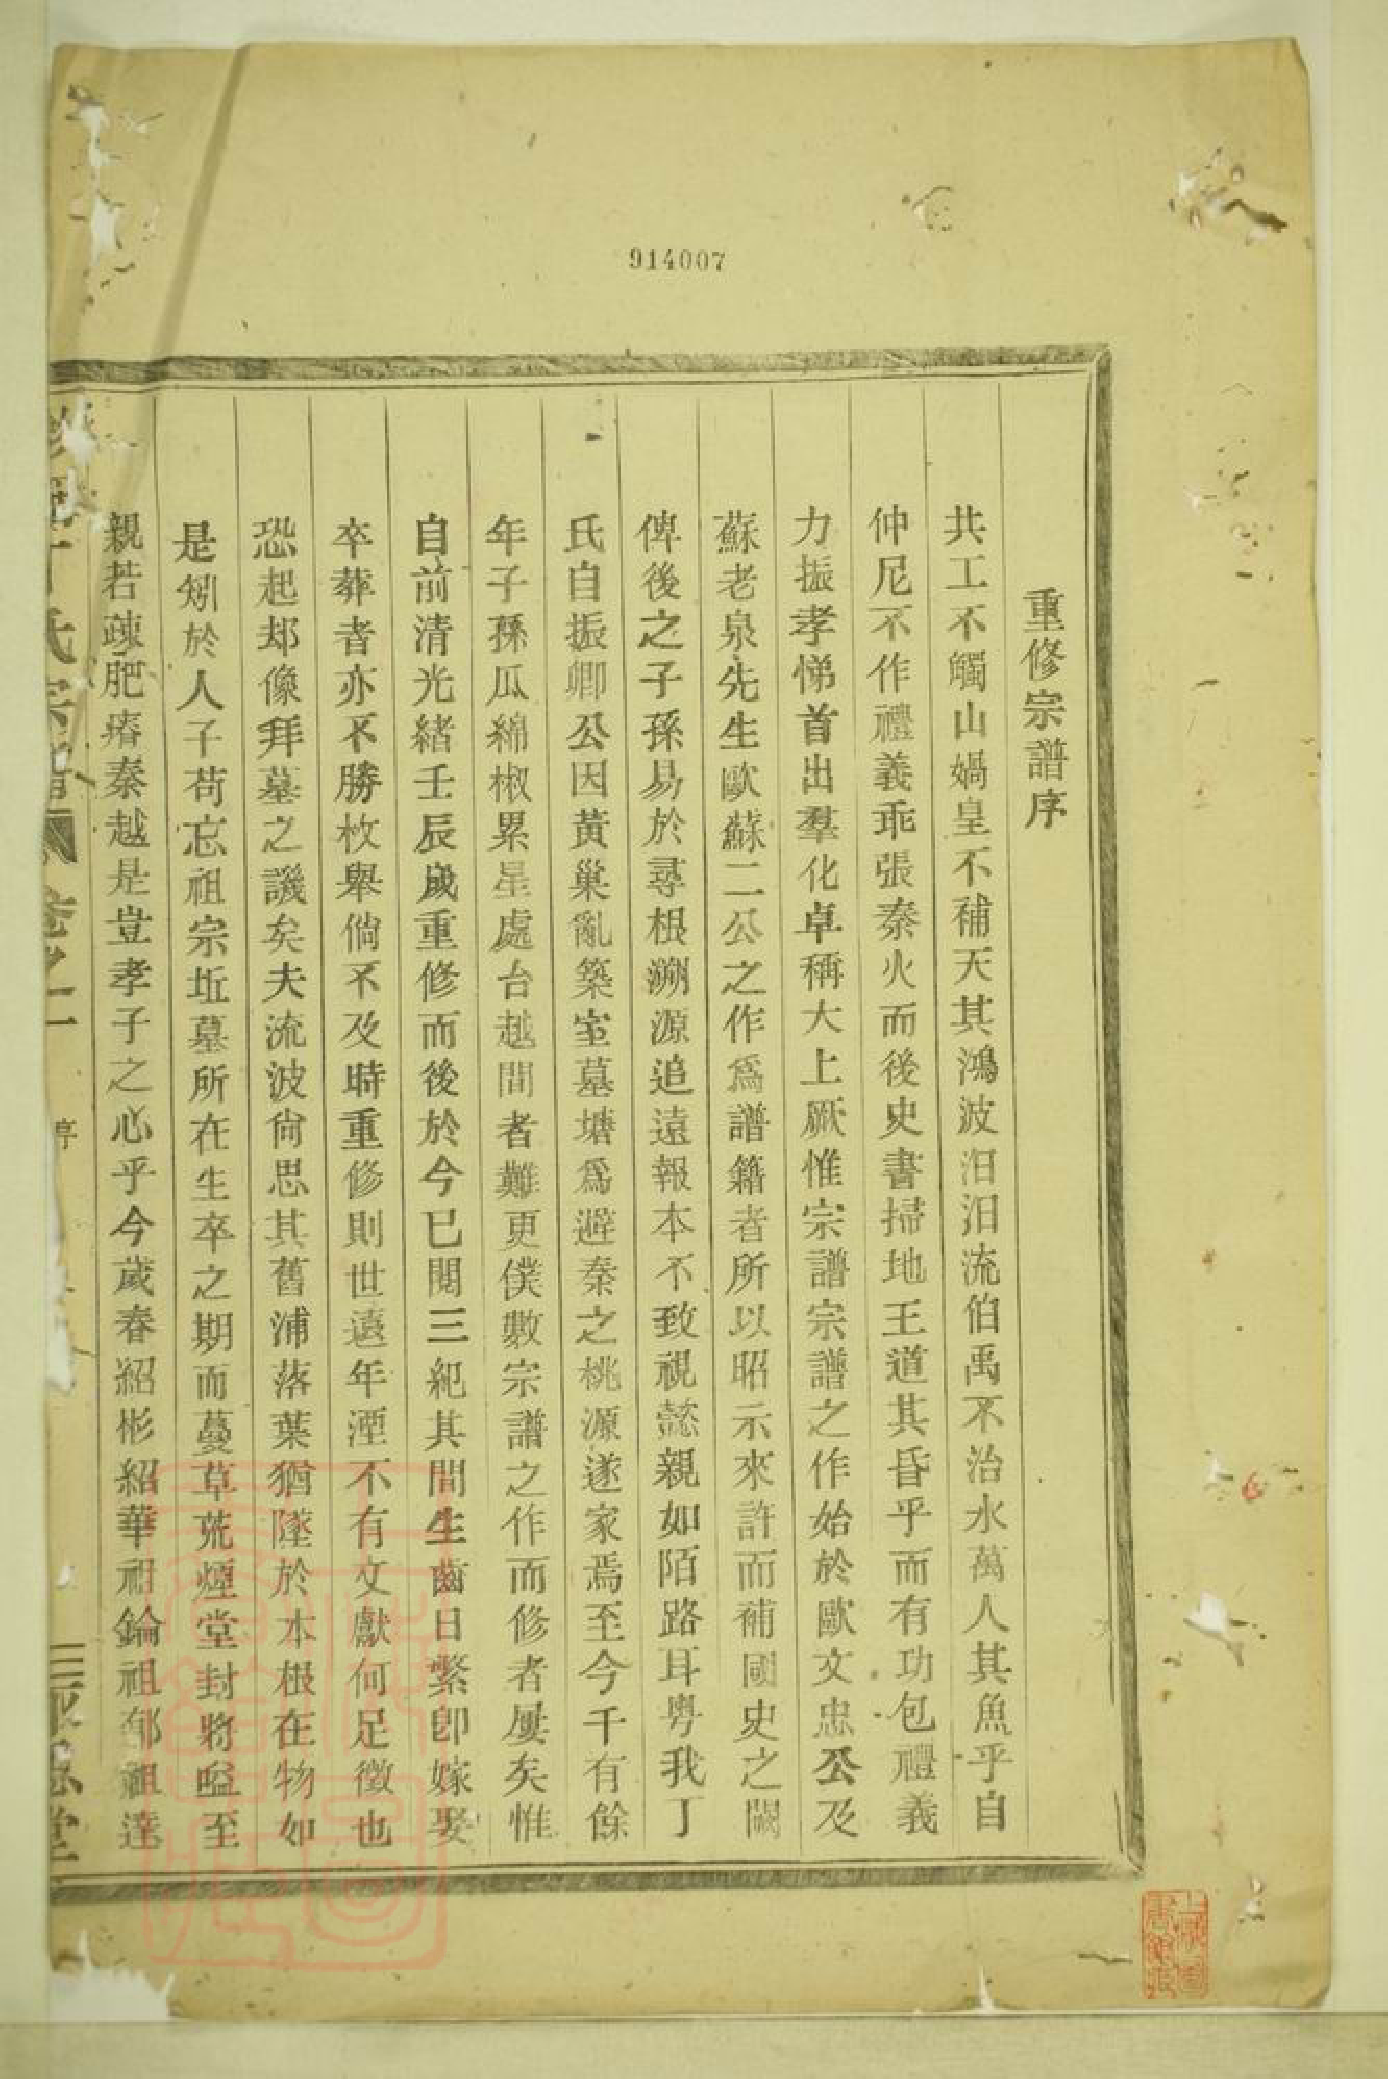 914007
重修宗譜序
共工不觸山媧皇不補天其鴻波汨汨流伯禹不治水萬人其魚乎自
仲尼不作禮義乖張秦火而後史書掃地王道其昏乎而有功包禮義
力振孝悌首出羣化卓稱大上厥惟宗譜宗譜之作始於歐文忠公及
蘇老泉先生歐蘇二公之作爲譜籍者所以昭示來許而補國史之闕
俾後之子孫易於尋根溯源追遠報本不致視懿親如陌路耳粤我丁
氏自振卿公因黃巢亂築室墓塘爲避秦之桃源遂家焉至今千有餘
年子孫瓜綿椒累星處台越間者難更僕數宗譜之作而修者屢矣惟
自前清光緒壬辰歲重修而後於今已閱三紀其間生齒日繁卽嫁娶
卒葬者亦不勝枚舉倘不及時重修則世遠年湮不有文獻何足徵也
恐起郄像拜墓之譏矣夫流波尙思其舊浦落葉猶墜於本根在物如
是矧於人子苟忘祖宗坵墓所在生卒之期而蔓草荒煙堂封將湓至
親若疎肥瘠秦越是豈孝子之心乎今歲春紹彬紹華祖錀祖郁祖達
氏宗譜 卷之一 序